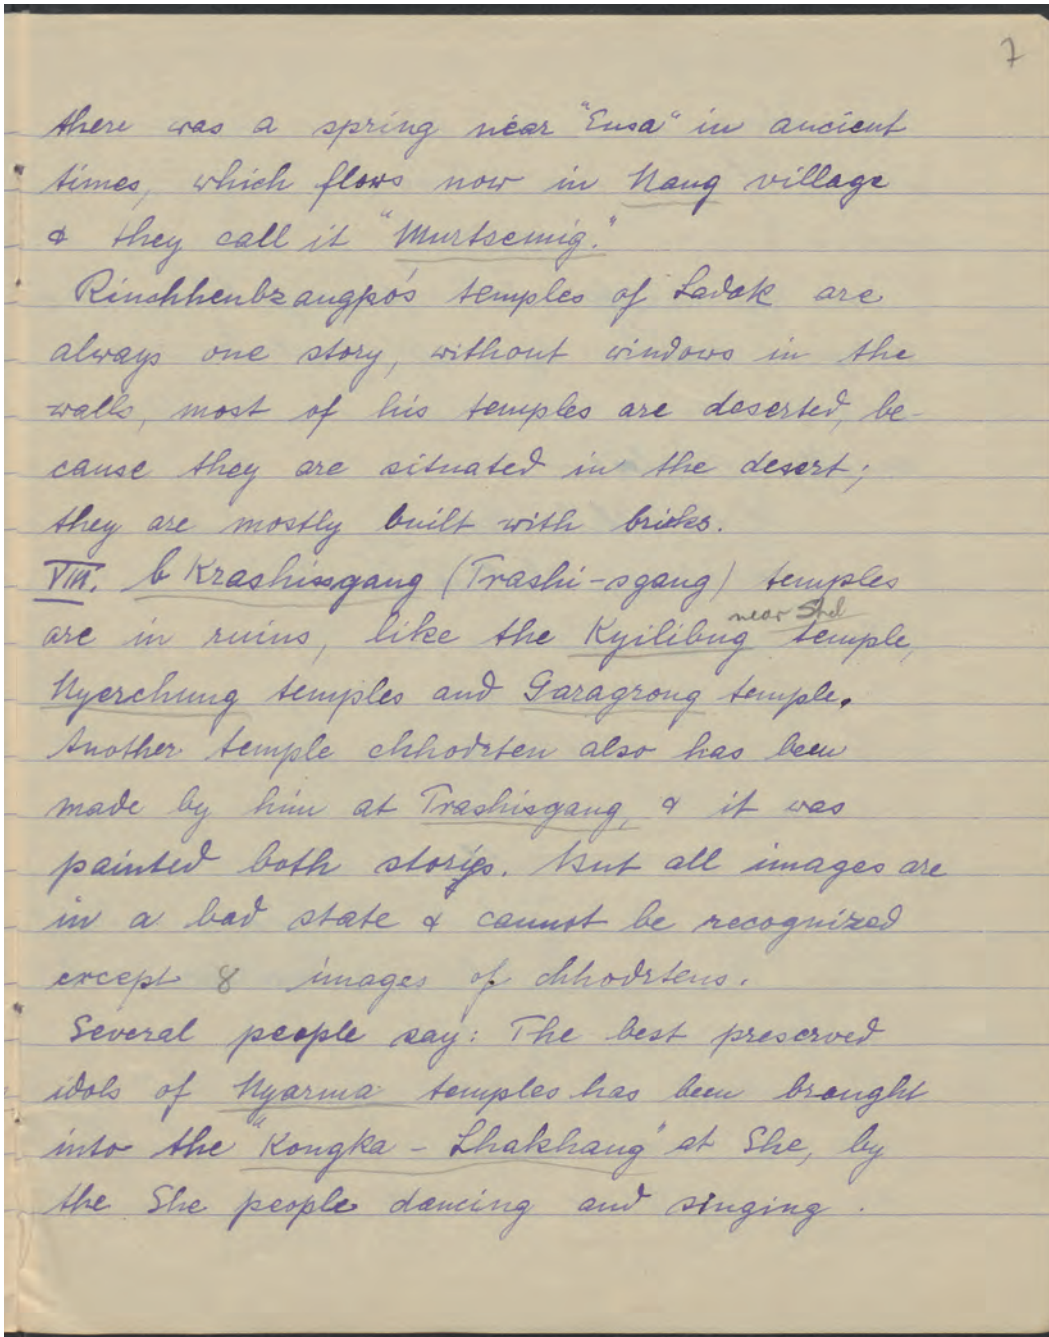 7
there was a spring near "Ensa" in ancient
times, which flows now in Nang village
& they call it "Murtsemig."
Rinchhenbzangpo's temples of Ladak are
always one story, without windows in the
walls, most of his temples are deserted, be-
cause they are situated in the desert;
they are mostly built with bricks.
VIII. bKrashissgang (Trashi-sgang) temples
near Shel
are in ruins, like the Kyilibug temple,
Nyerchung temples and Garagrong temple.
Another temple chhodrten also has been
made by him at Trashisgang, & it was
painted both storys. But all images are
in a bad state & cannot be recognized
except 8 images of chhodrtens.
Several people say: The best preserved
idols of Nyarma temples has been brought
into the "Kongka - Lhakhang" at She, by
the She people dancing and singing.